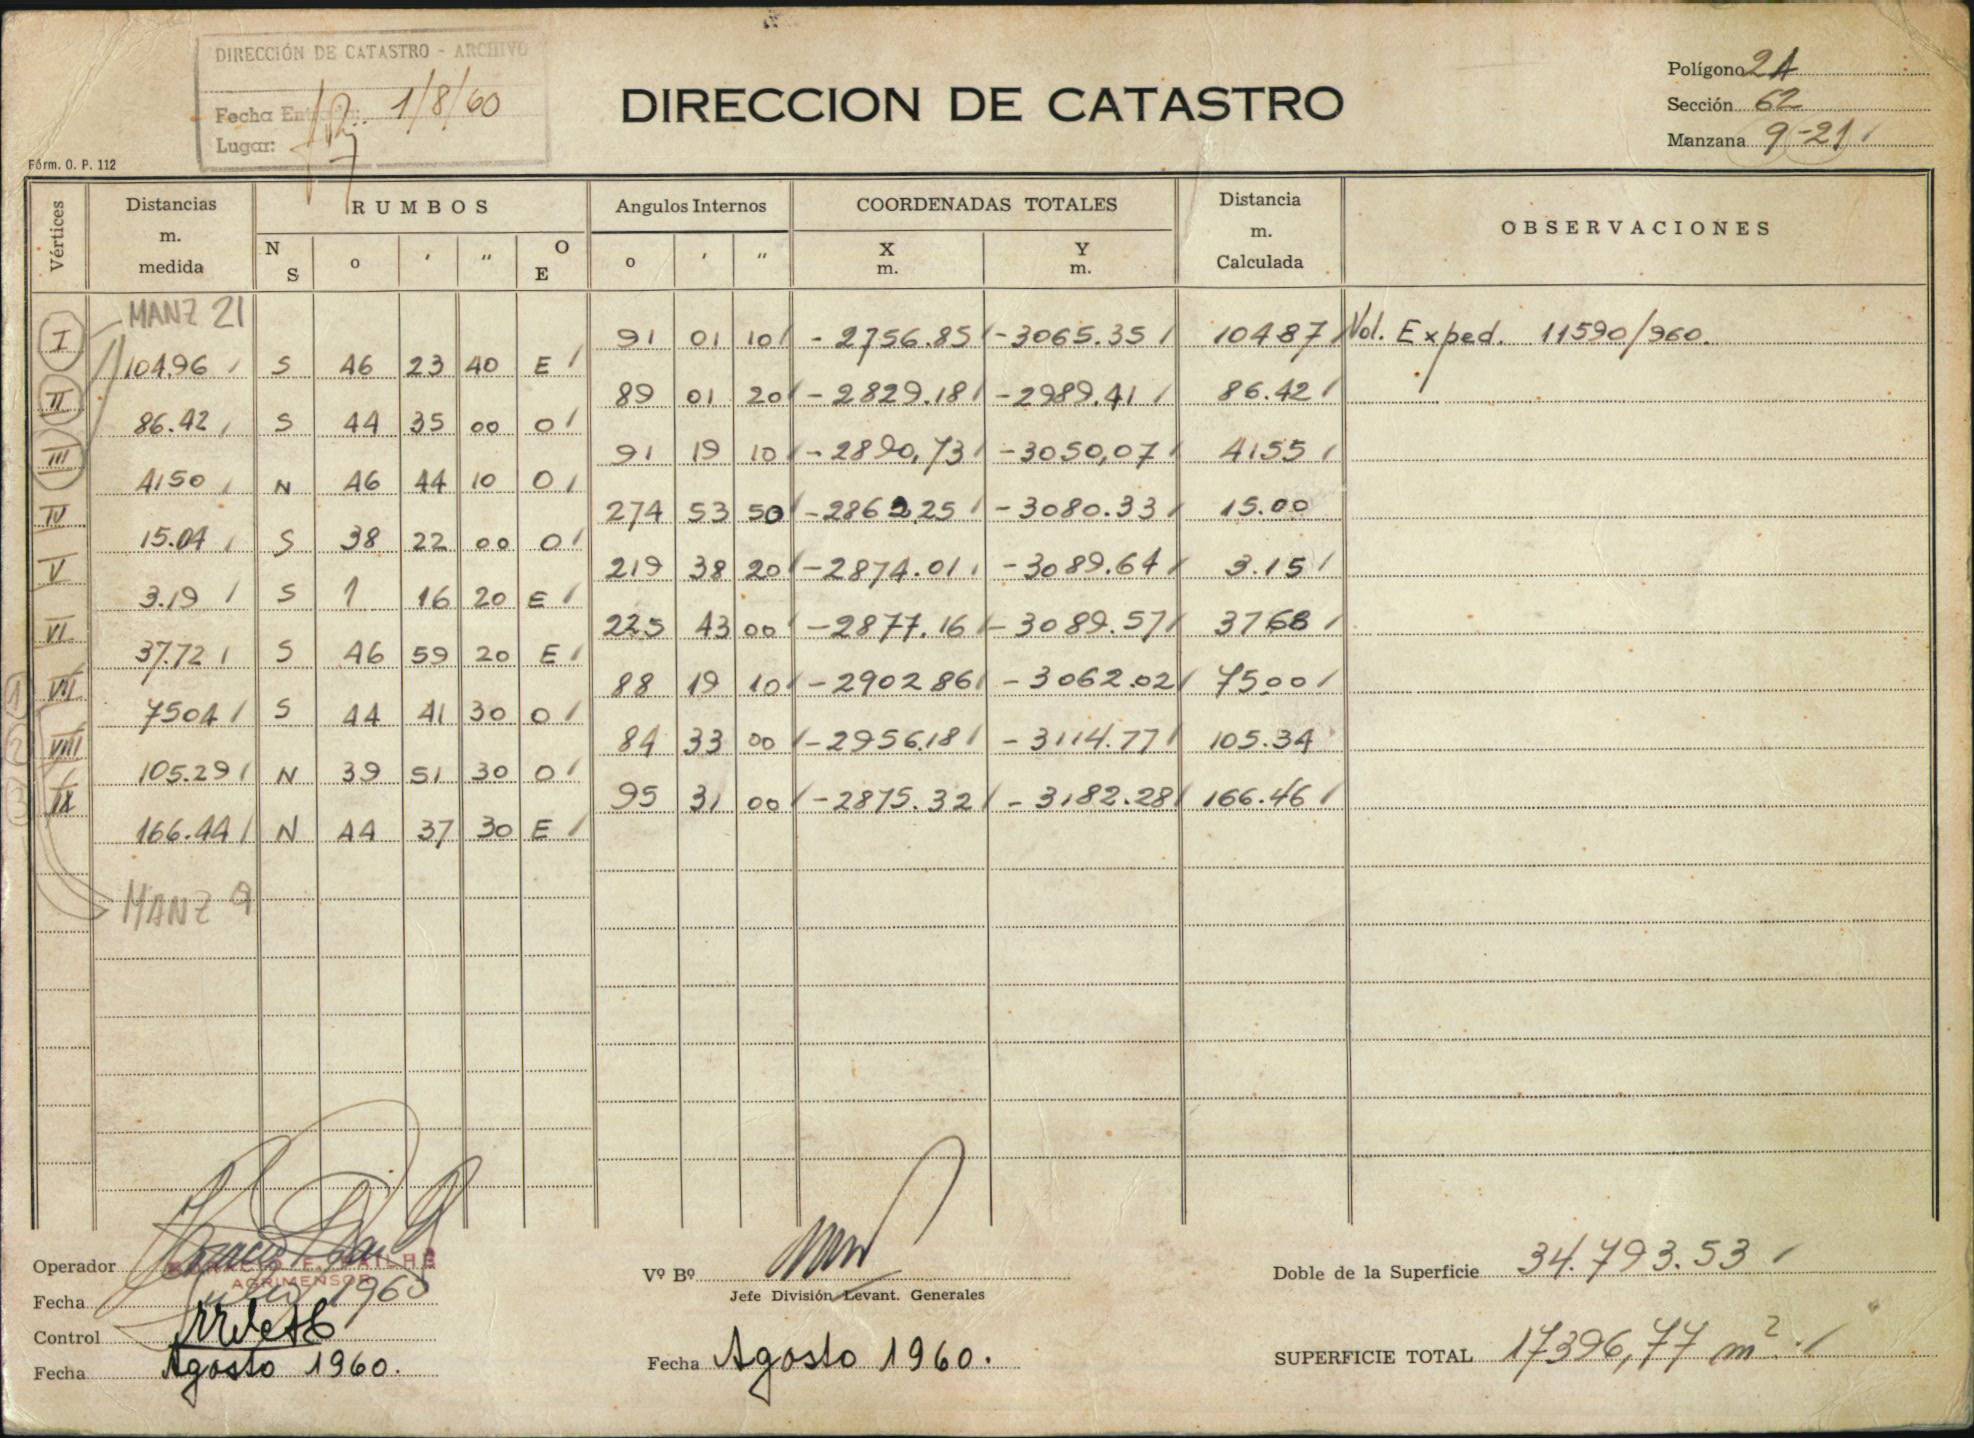 DIRECCIÓN DE CATASTRO - ARCHIVO
Fecha Entrada: 1/8/60
Lugar:
DIRECCION DE CATASTRO
Polígono 24
Sección 62
Manzana 9-21
Fórm. O. P. 112
Vértices
Distancias m. medida
RUMBOS
N S o ' " O E
Angulos Internos
o ' "
COORDENADAS TOTALES
X m. Y m.
Distancia m. Calculada
OBSERVACIONES
MANZ 21
I 91 01 10 -2756.85 -3065.35 104.87 Vol. Exped. 11590/960.
104.96 S 46 23 40 E
II 89 01 20 -2829.18 -2989.41 86.42
86.42 S 44 35 00 O
III 91 19 10 -2890,73 -3050,07 41.55
41.50 N 46 44 10 O
IV 274 53 50 -2862.25 -3080.33 15.00
15.04 S 38 22 00 O
V 219 38 20 -2874.01 -3089.64 3.15
3.19 S 1 16 20 E
VI 225 43 00 -2877.16 -3089.57 37.68
37.72 S 46 59 20 E
1 VII 88 19 10 -2902.86 -3062.02 75.00
75.04 S 44 41 30 O
2 VIII 84 33 00 -2956.18 -3114.77 105.34
105.29 N 39 51 30 O
3 IX 95 31 00 -2875.32 -3182.28 166.46
166.44 N 44 37 30 E
MANZ 9
Operador
AGRIMENSOR
Fecha Julio 1960
Control
Fecha Agosto 1960.
Vº Bº
Jefe División Levant. Generales
Fecha Agosto 1960.
Doble de la Superficie 34.793.53
SUPERFICIE TOTAL 17396,77 m².